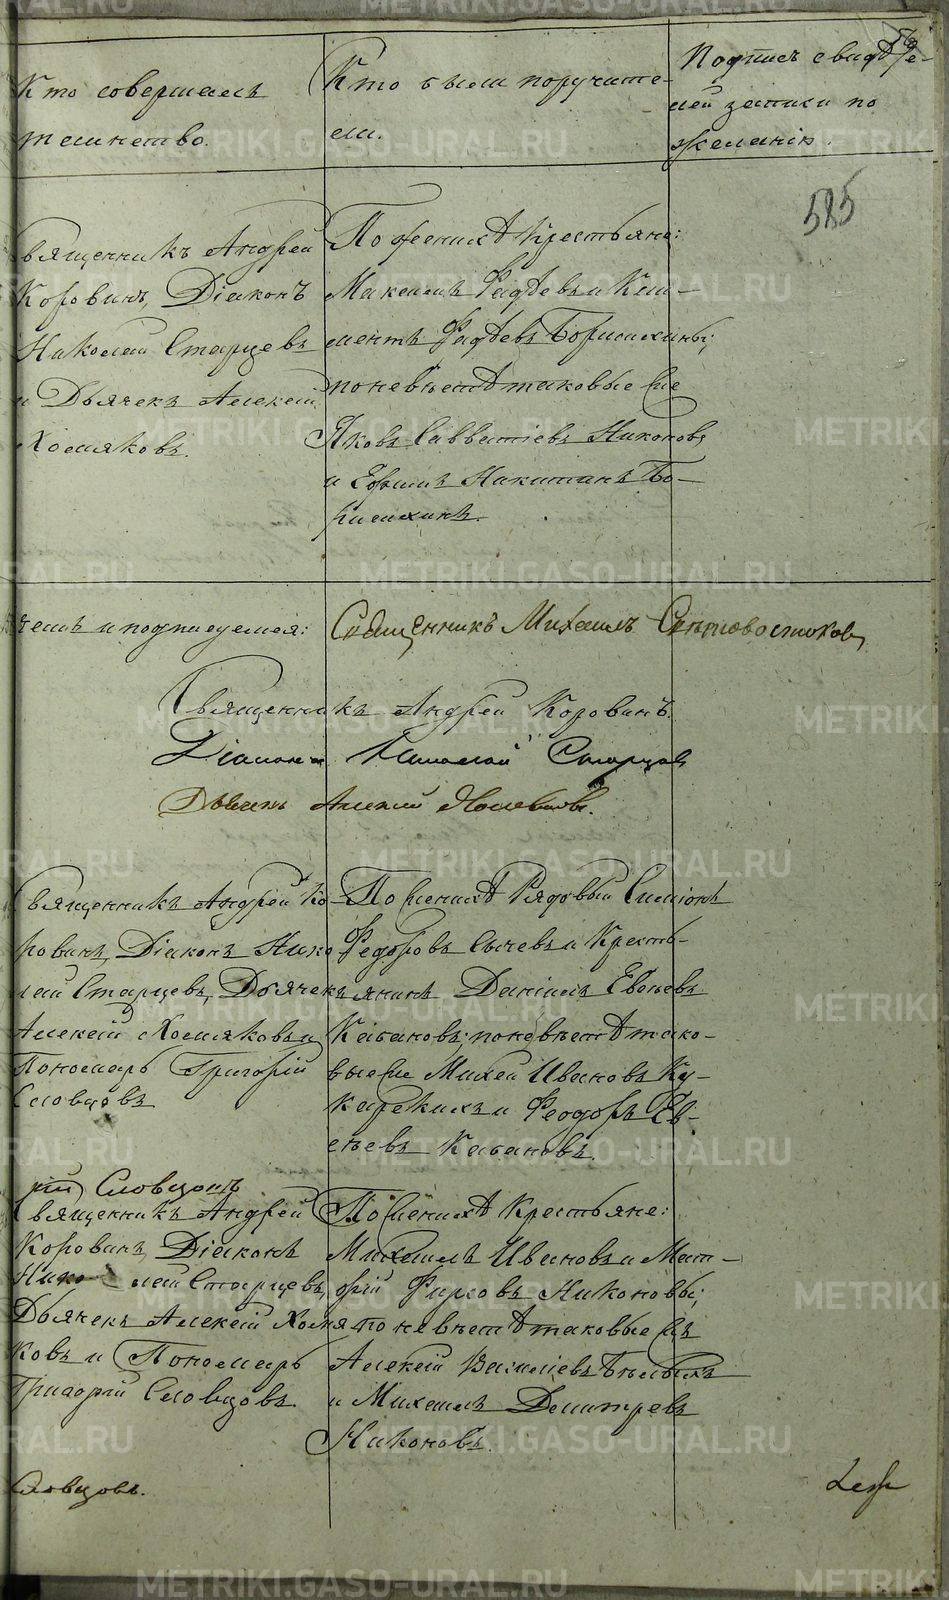 Кто совершалъ
таинство.
Кто были поручите-
ли.
Подпись свидѣте-
лей записи по
желанію.
585
Священникъ Андрей
Коровинъ, Діаконъ
Николай Старцевъ
и Дьячекъ Алексій
Хомяковъ.
По женихѣ Крестьяне:
Максимъ Фадѣевъ и Кли-
ментъ Фадѣевъ Борисихины;
по невѣстѣ таковые же
Яковъ Савватіевъ Никоновъ
и Ефимъ Никитинъ Бо-
рисихинъ.
и подписуемся: Священникъ Михаилъ Свѣтовостоковъ
Священникъ Андрей Коровинъ.
Діаконъ Николай Старцовъ
Дьячекъ Алексій Хомяковъ.
Священникъ Андрей Ко-
ровинъ, Діаконъ Нико
лай Старцевъ, Дьячекъ
Алексій Хомяковъ и
Пономарь Григорій
Словцовъ
По женихѣ Рядовый Симіонъ
Федоровъ Сычевъ и Кресть-
янинъ Даніилъ Евсѣевъ
Кабановъ; по невѣстѣ тако-
вые же Михей Ивановъ Ку-
карскихъ и Феодоръ Ев-
сѣевъ Кабановъ.
рій Словцовъ
Священникъ Андрей
Коровинъ, Діаконъ
Николай Старцевъ,
Дьячекъ Алексій Хомя
ковъ и Пономарь
Григорій Словцовъ
По женихѣ Крестьяне:
Михаилъ Ивановъ и Мат-
фій Фирсовъ Никоновы;
по невѣстѣ таковые жъ
Алексій Василіевъ Бѣлыхъ
и Михаилъ Дмитревъ
Никоновъ.
Словцовъ.
METRIKI.GASO-URAL.RU